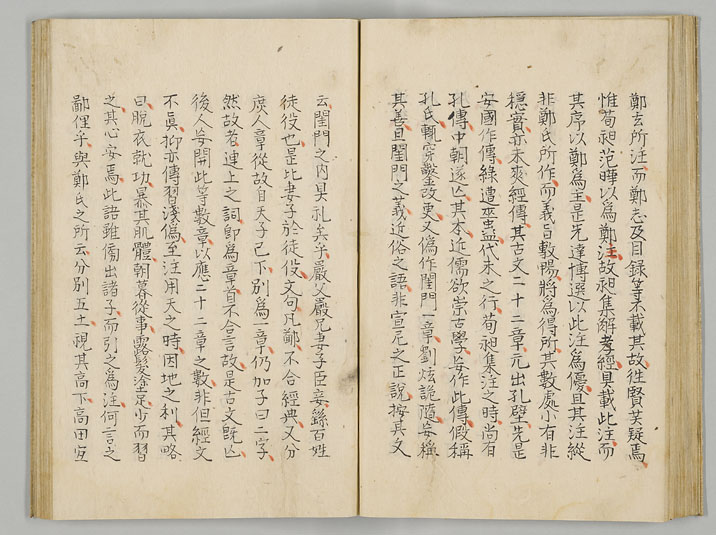 鄭玄所注而鄭志及目録等不載其故徃賢共疑焉
惟荀昶范曄以為鄭注故昶集解孝經具載此注而
其序以鄭為主是先達博選以此注為優且其注縱
非鄭氏所作而義旨敷暢將為得所其數處小有非
穩實亦未爽經傳其古文二十二章元出孔壁先是
安國作傳緣遭巫蠱代未之行荀昶集注之時尚有
孔傳中朝遂亡其本近儒欲崇古學妄作此傳假稱
孔氏輒穿鑿改更又偽作閨門一章劉炫詭隨妄稱
其善且閨門之義近俗之語非宣尼之正說按其文
云閨門之内具礼矣乎嚴父嚴兄妻子臣妾繇百姓
徒役也是比妻子於徒役文句凡鄙不合經典又分
庶人章從故自天子已下別為一章仍加子曰二字
然故者連上之詞即為章首不合言故是古文既亡
後人妄開此等數章以應二十二章之數非但經文
不真抑亦傳習淺偽至注用天之時因地之利其略
曰脫衣就功暴其肌體朝暮從事露髮塗足少而習
之其心安焉此語雖傍出諸子而引之為注何言之
鄙俚乎與鄭氏之所云分別五土視其高下高田宜